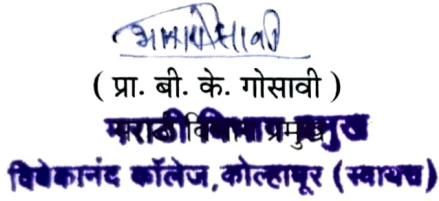 ( प्रा. बी. के. गोसावी )
मराठी विभाग प्रमुख
विवेकानंद कॉलेज, कोल्हापूर (स्वायत्त)